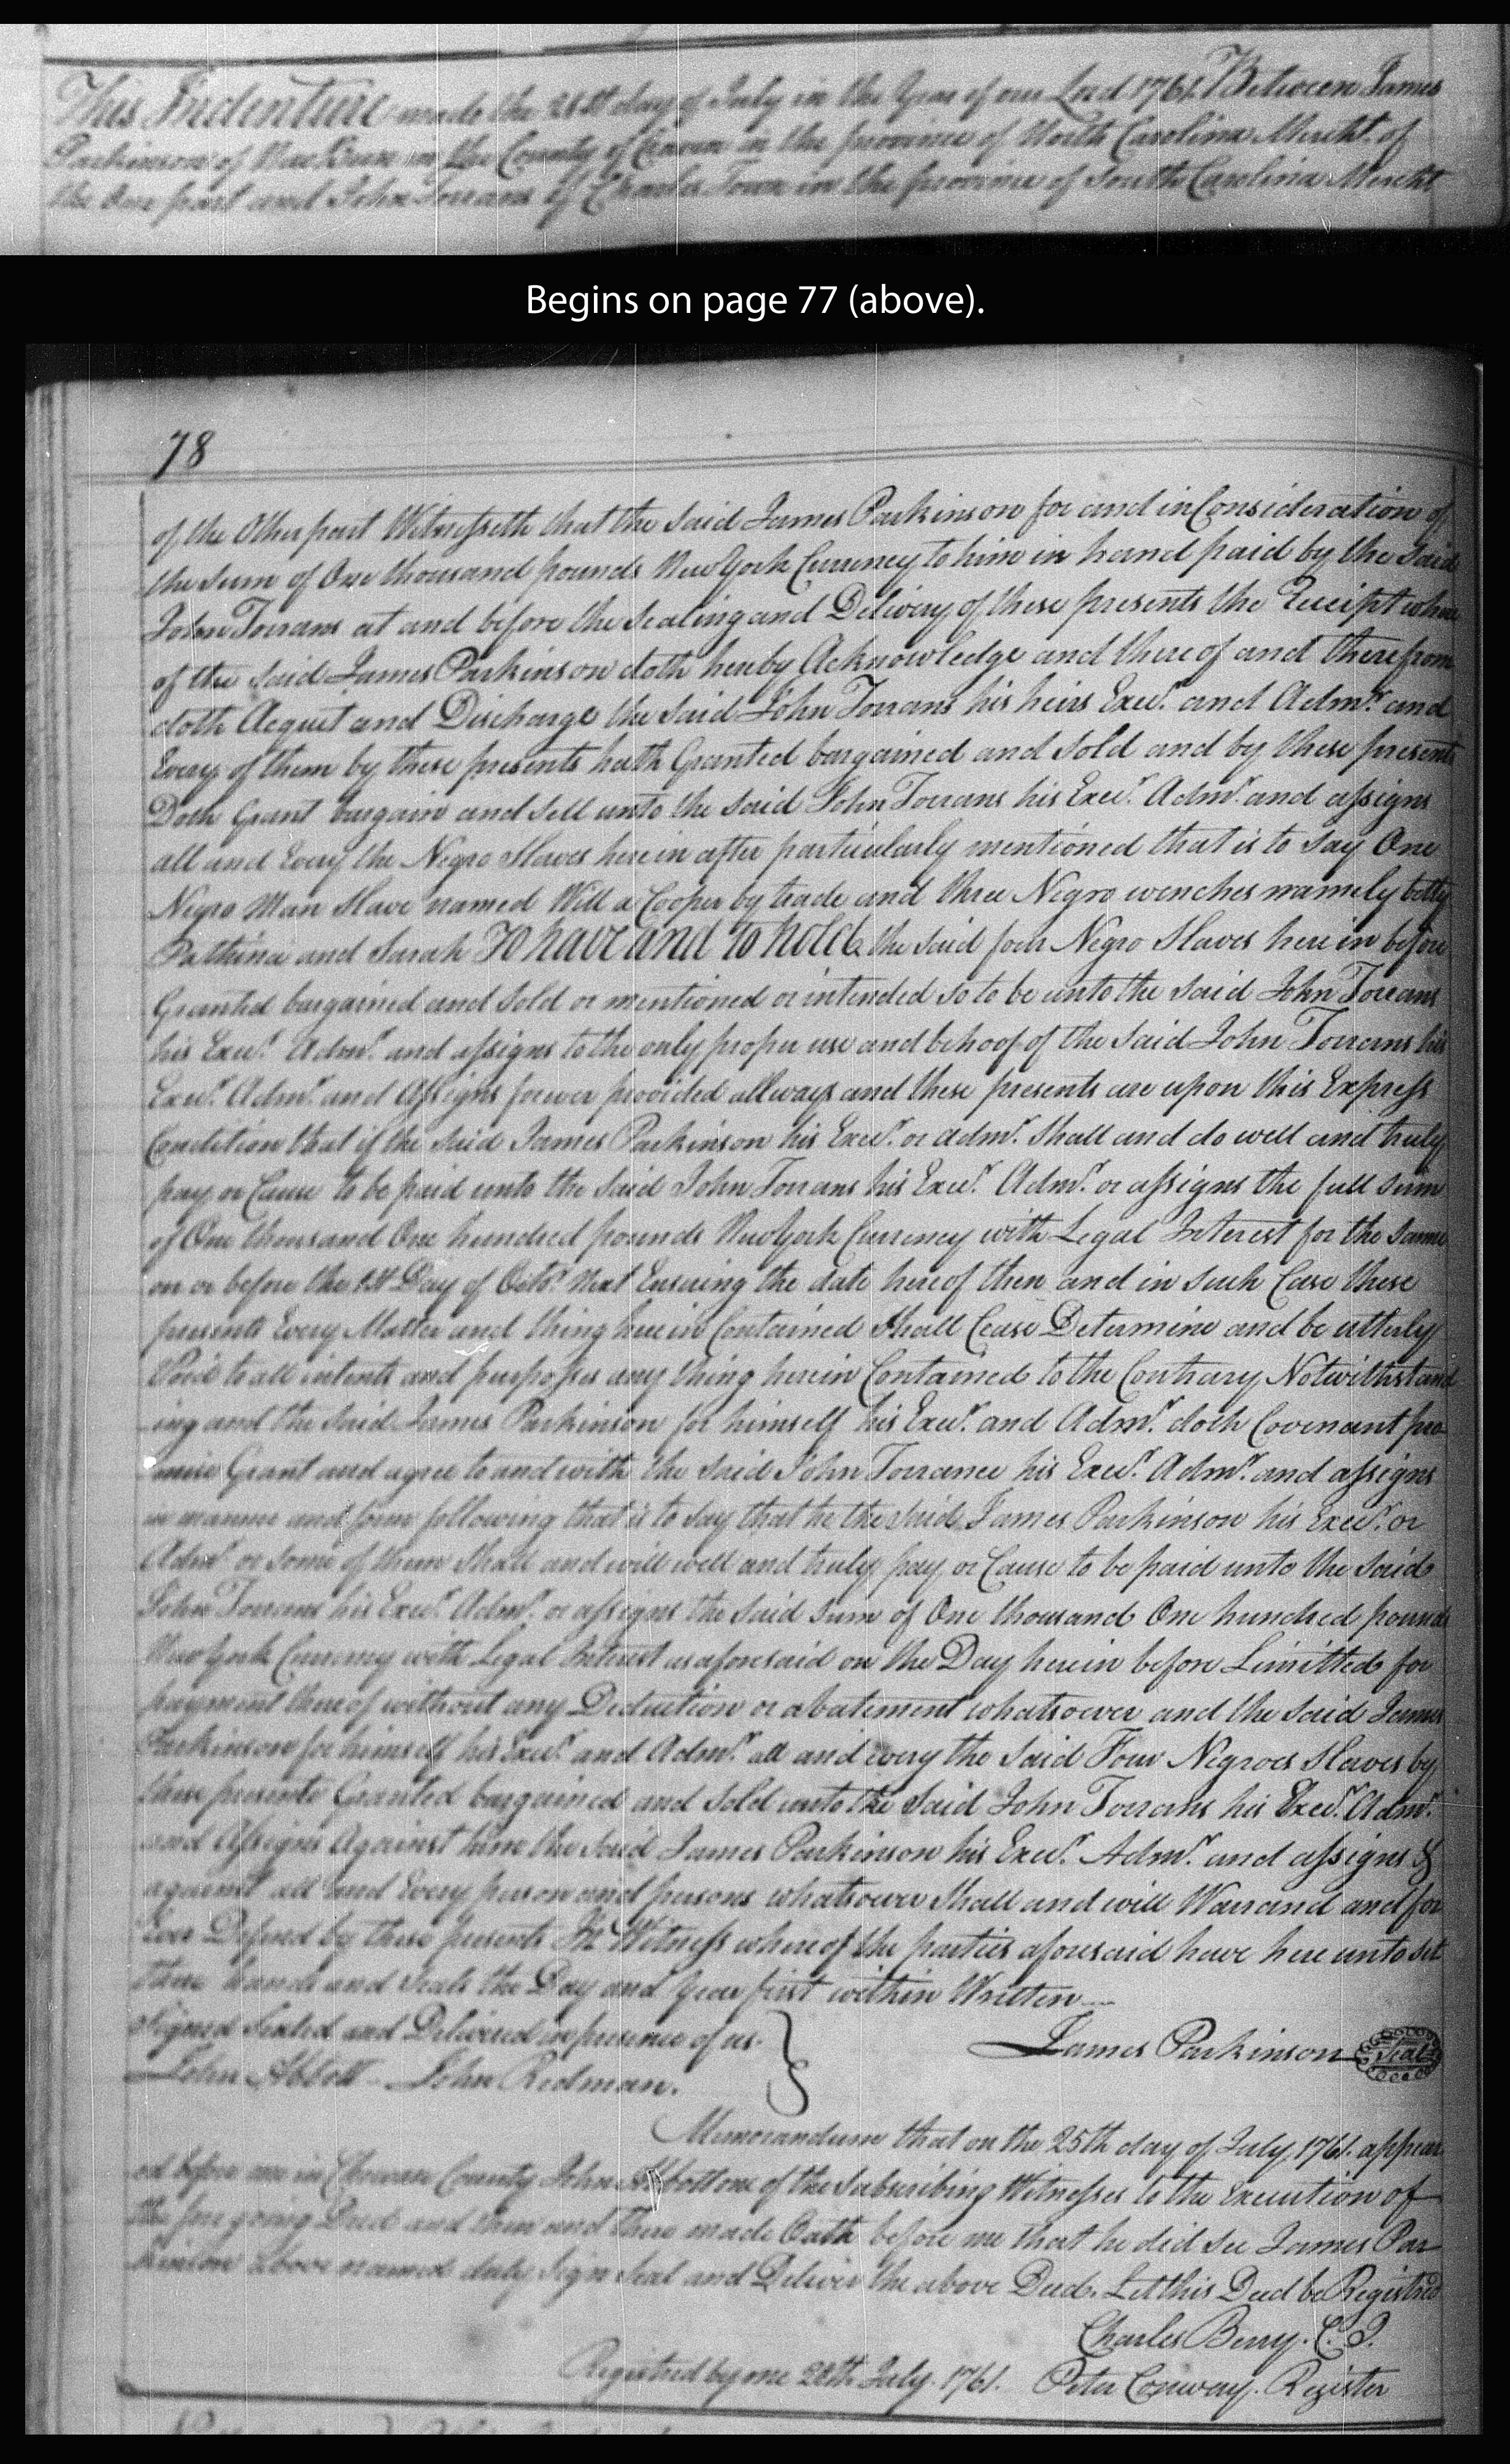 This Indenture made the 21st day of July in the Year of our Lord 1761. Between James
Parkinson of New Bern in the County of Craven in the province of North Carolina Mercht. of
the One part and John Torrans of Charles Town in the province of South Carolina Mercht
Begins on page 77 (above).
78
of the Other part Witnesseth that the said James Parkinson for and in Consideration of
the sum of One thousand pounds New York Currency to him in hand paid by the said
John Torrans at and before the Sealing and Delivery of these presents the Receipt where
of the said James Parkinson doth hereby Acknowledge and thereof and therefrom
doth Acquit and Discharge the said John Torrans his heirs Exec.r and Adm.r and
Every of them by these presents hath Granted bargained and Sold and by these presents
Doth Grant bargain and sell unto the said John Torrans his Exec.r Adm.r and assigns
all and Every the Negro Slaves herein after particularly mentioned that is to Say One
Negro Man Slave named Will a Cooper by trade and three Negro wenches namely betty
and Sarah To have and to hold the said four Negro Slaves here in before
Granted bargained and Sold or mentioned or intended so to be unto the said John Torrans
his Exec.r Adm.r and assigns to the only proper use and behoof of the said John Torrans his
Exec.r Adm.r and Assigns forever provided allways and these presents are upon this Express
Condition that if the said James Parkinson his Exec.r or adm.r Shall and do well and truly
pay or Cause to be paid unto the said John Torrans his Exec.r Adm.r or assigns the full sum
of One thousand One hundred pounds New York Currency with Legal Interest for the same
on or before the 1st Day of Octo.r Next Ensuing the date hereof then and in such Case these
presents Every Matter and thing herein Contained Shall Cease Determine and be utterly
Void to all intents and purposses any thing herein Contained to the Contrary Notwithstand
ing and the said James Parkinson for himself his Exec.r and Adm.r doth Covenant pro
mise Grant and agree to and with the said John Torrance his Exec.r Adm.r and assigns
in manner and form following that is to Say that he the said James Parkinson his Exec.r or
Adm.r or some of them Shall and will well and truly pay or Cause to be paid unto the said
John Torrans his Exec.r Adm.r or assigns the said sum of One thousand One hundred pounds
New York Currency with Legal Interest as aforesaid on the Day herein before Limitted for
payment thereof without any Deduction or abatement whatsoever and the said James
Parkinson for himself his Exec.r and Adm.r all and every the said Four Negroes Slaves by
these presents Granted bargained and Sold unto the said John Torrans his Exec.r Adm.r
and Assigns Against him the said James Parkinson his Exec.r Adm.r and assigns &
against all and Every person and persons whatsoever Shall and will Warrand and for
Ever Defend by these presents In Witness where of the parties aforesaid have here unto set
there hands and Seals the Day and Year first within Written
Signed Sealed and Delivered in presence of us.
James Parkinson Seal
John Abbott John Redman.
Memorandum that on the 25th day of July 1761. appear
ed before me in Chowan County John Abbott one of the Subscribing Witnesses to the Execution of
the foregoing Deed and then and There made Oath before me that he did see James Par
kinson above named duly Sign Seal and Deliver the above Deed. Let this Deed be Registred
Charles Berry. C. J.
Registred by me 28th July. 1761. Peter Conway. Register